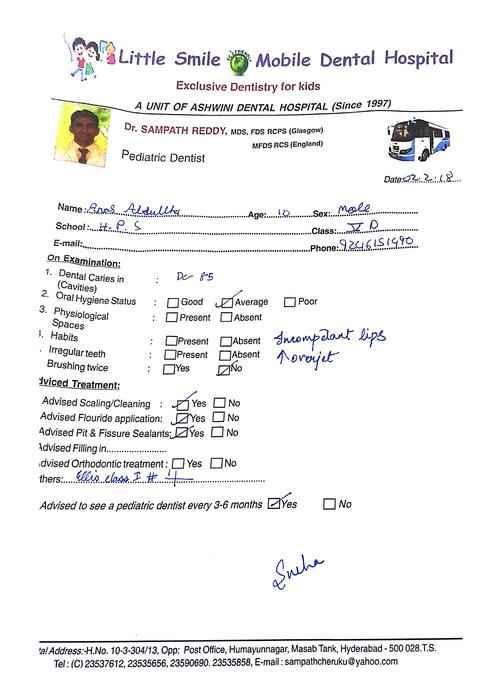 Little Smile Mobile Dental Hospital
Exclusive Dentistry for kids
A UNIT OF ASHWINI DENTAL HOSPITAL (Since 1997)
Dr. SAMPATH REDDY, MDS, FDS RCPS (Glasgow)
MFDS RCS (England)
Pediatric Dentist
Date: 02.2.18
Name: Anas Abdullha Age: 10 Sex: Male
School: H.P.S Class: V D
E-mail: Phone: 9246151490
On Examination:
1. Dental Caries in : Dc- 85
(Cavities)
2. Oral Hygiene Status : Good Average Poor
3. Physiological : Present Absent
Spaces
. Habits : Present Absent Incompetant lips
. Irregular teeth : Present Absent ↑ overjet
Brushing twice : Yes No
dviced Treatment:
Advised Scaling/Cleaning : Yes No
Advised Flouride application: Yes No
Advised Pit & Fissure Sealants: Yes No
Advised Filling in
dvised Orthodontic treatment : Yes No
thers: Ellis class I #
Advised to see a pediatric dentist every 3-6 months Yes No
Sneha
al Address:-H.No. 10-3-304/13, Opp: Post Office, Humayunnagar, Masab Tank, Hyderabad - 500 028.T.S.
Tel : (C) 23537612, 23535656, 23590690. 23535858, E-mail : sampathcheruku@yahoo.com